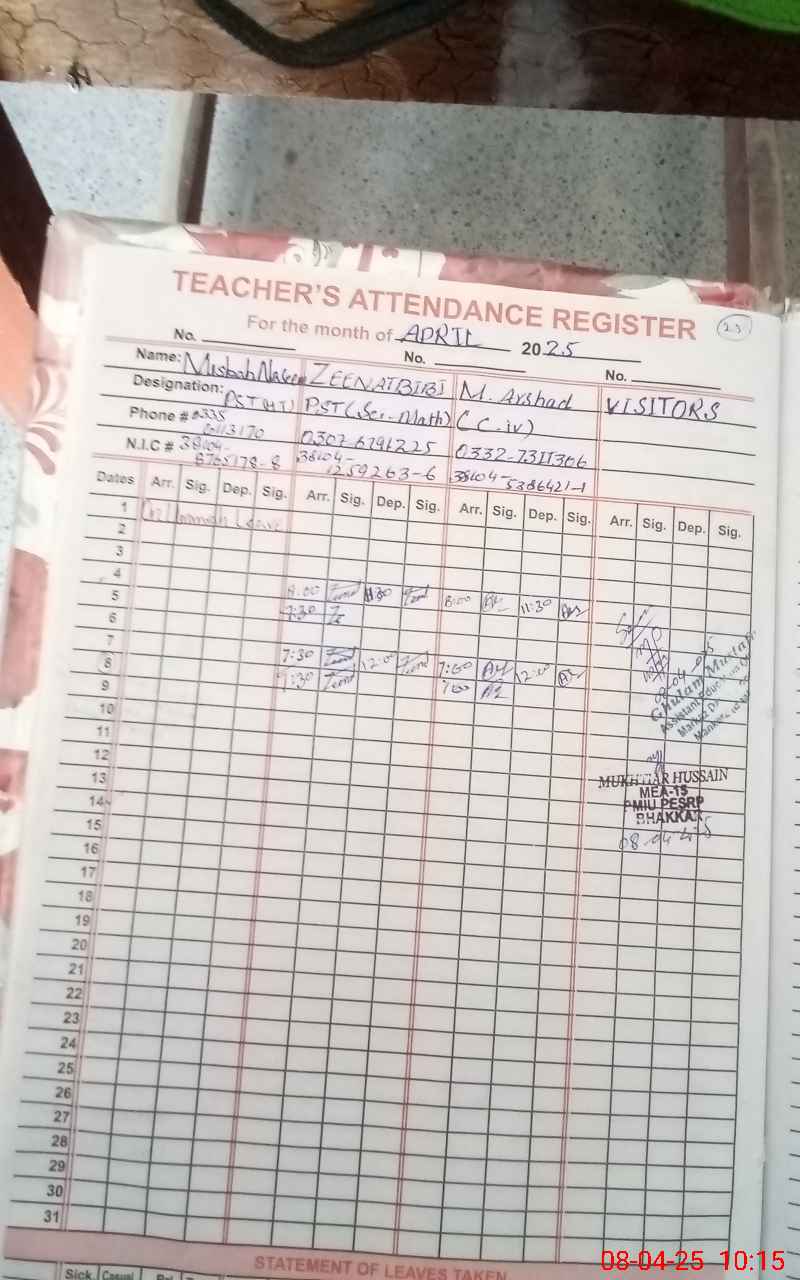 TEACHER'S ATTENDANCE REGISTER
23
For the month of APRIL 2025
No. No. No.
Name: Misbah Naz ZEENAT BIBI M. Arshad VISITORS
Designation: PST (HT) PST (Sci-Math) (C.iv)
Phone # 0335 0307 6191225 0332-7311306
N.I.C # 38104- 38104- 38104-
8765178-8 1259263-6 5386421-1
Dates Arr. Sig. Dep. Sig. Arr. Sig. Dep. Sig. Arr. Sig. Dep. Sig. Arr. Sig. Dep. Sig.
1 On Ummrah Leave
2
3
4
5 8:00 11:30 8:00 11:30
6 7:30
7
8 7:30 12:00 7:00 12:00
9 7:30 7:00
10
11
12
13
14
15
16
17
18
19
20
21
22
23
24
25
26
27
28
29
30
31
Ghulam
Assistant Education
MUKHTIAR HUSSAIN
MEA-15
PMIU PESRP
BHAKKAR
08-04-25
STATEMENT OF LEAVES TAKEN
Sick. Casual
08-04-25 10:15